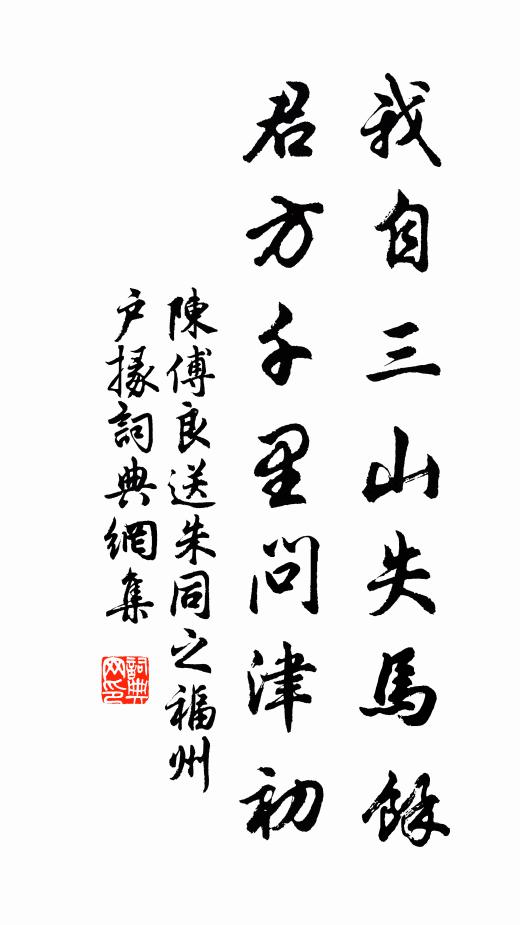 我自三山失馬餘
君方千里問津初
陳傅良送朱同之福州
户掾詞典網集
詞典网印